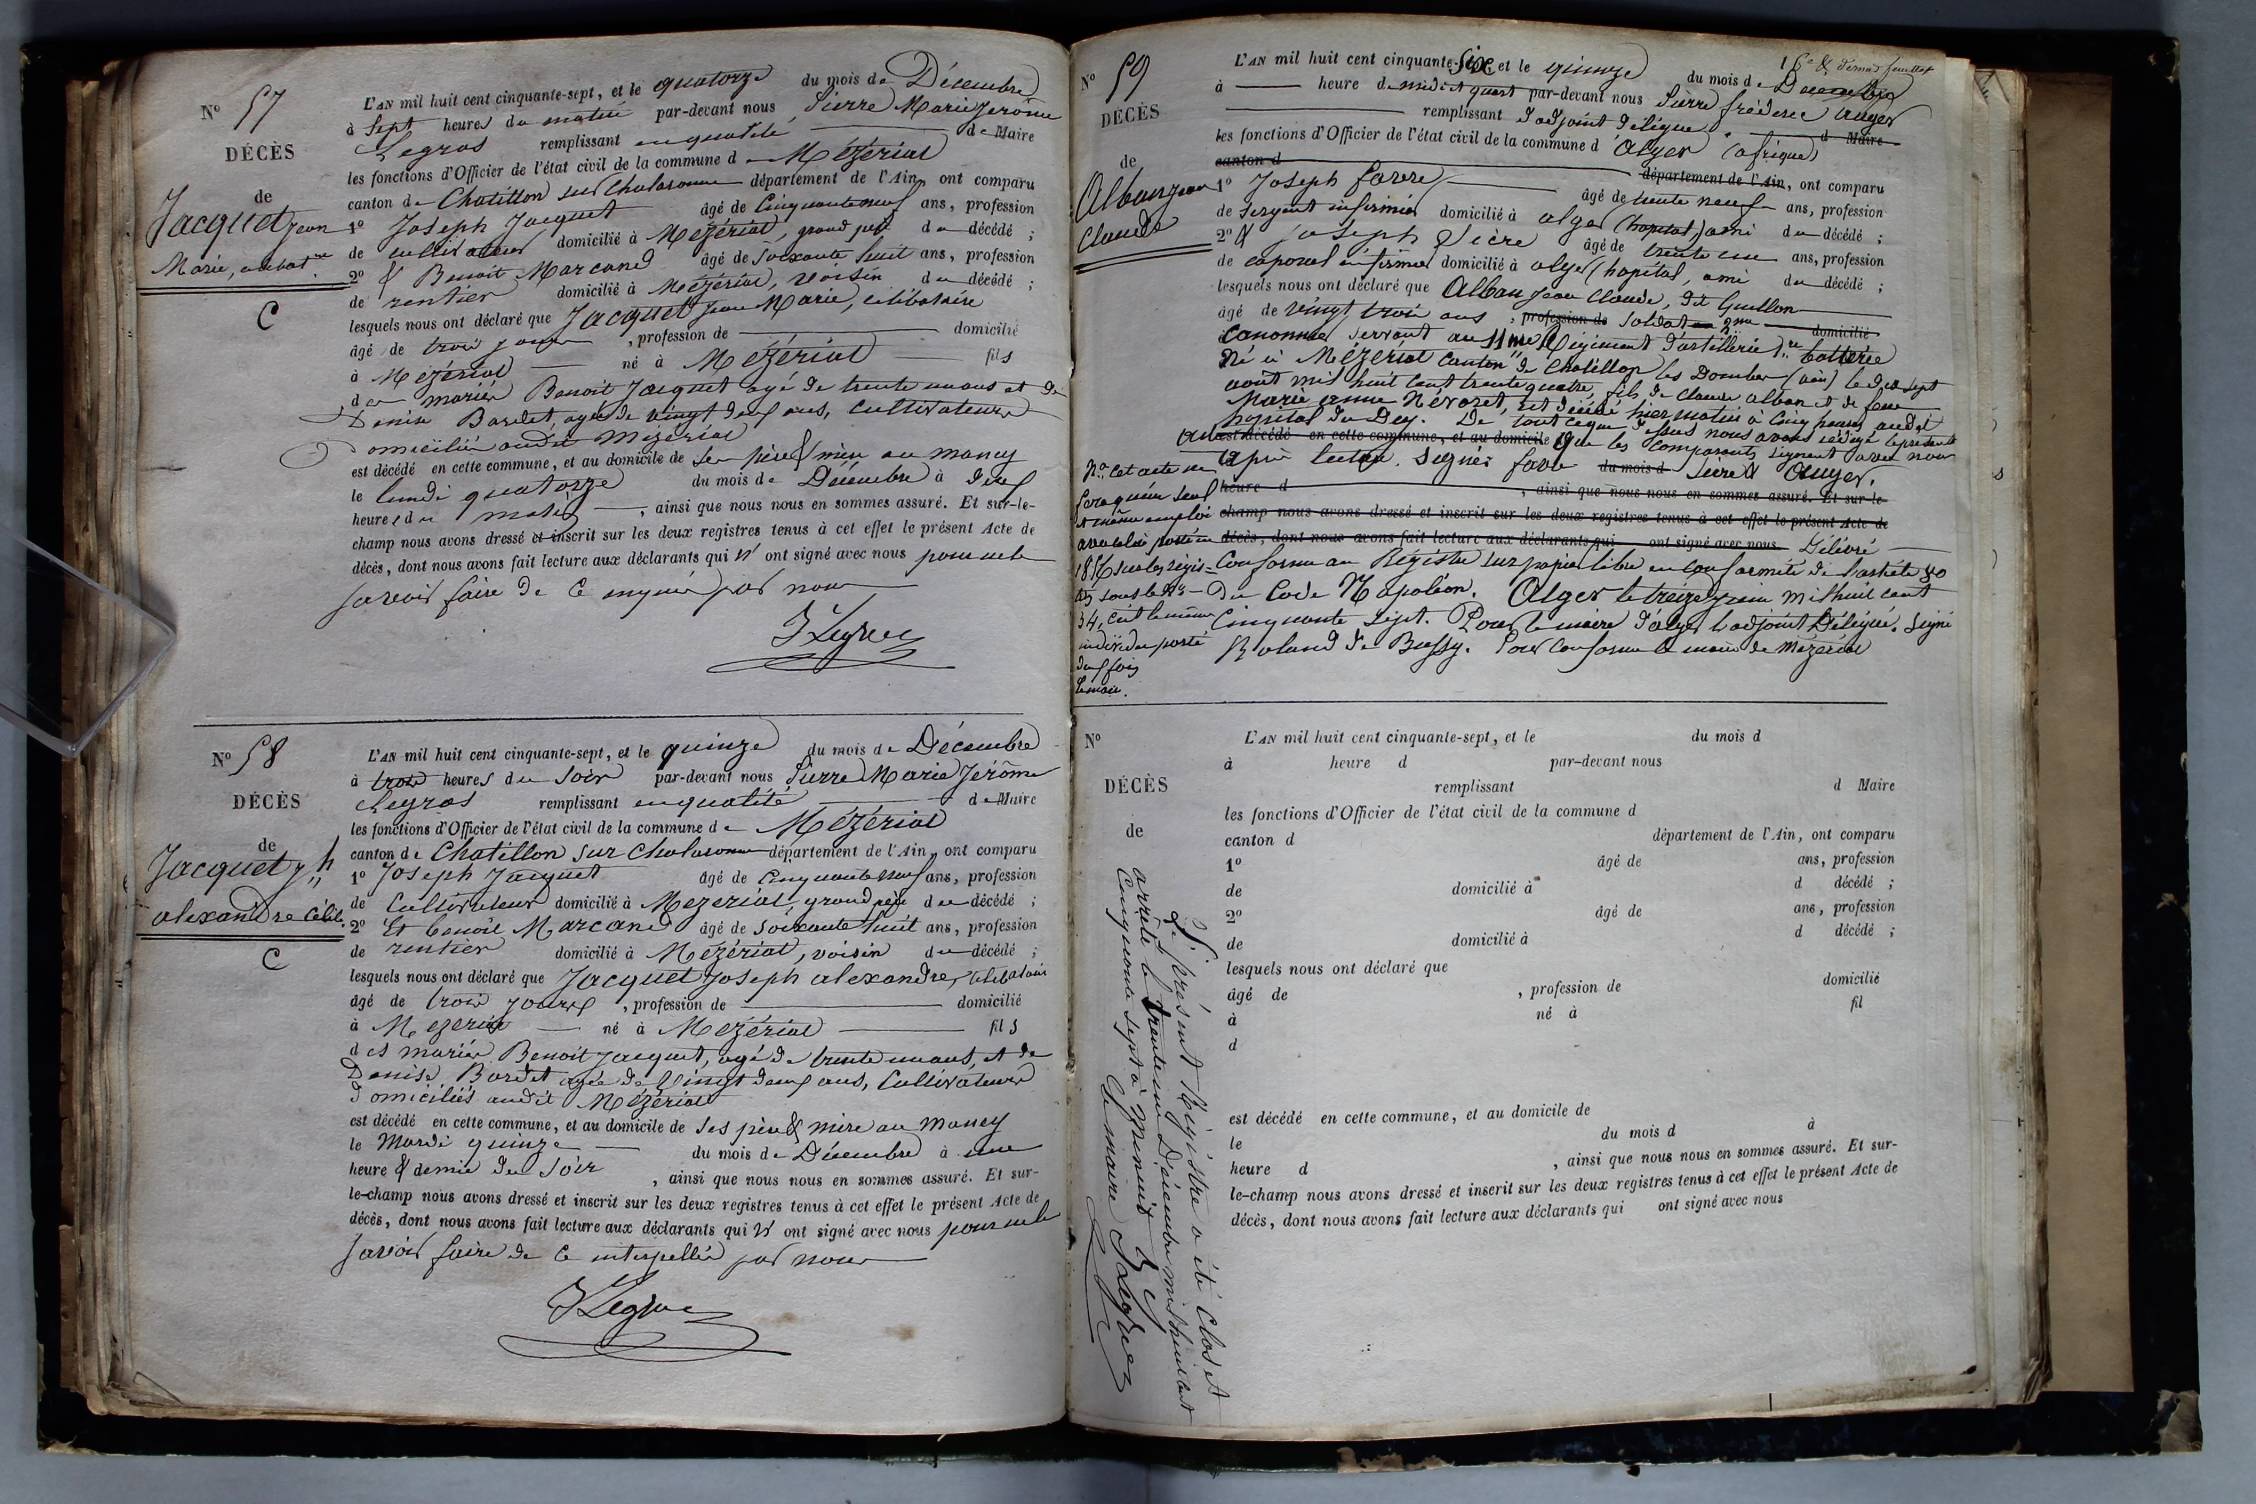 N° 57
DÉCÈS
de
Jacquet Jean
Marie, célibat.re
C
L'AN mil huit cent cinquante-sept, et le quatorze du mois de Décembre
à Sept heures du matin par-devant nous Pierre Marie Jérôme
Legros remplissant en qualité de Maire
les fonctions d'Officier de l'état civil de la commune de Mézériat
canton de Chatillon sur Chalaronne département de l'Ain, ont comparu
1° Joseph Jacquet âgé de Cinquante neuf ans, profession
de cultivateur domicilié à Mézériat, grand père du décédé ;
2° & Benoit Marcand âgé de Soixante huit ans, profession
de rentier domicilié à Mézériat, voisin du décédé ;
lesquels nous ont déclaré que Jacquet Jean Marie, célibataire
âgé de trois jours, profession de domicilié
à Mézériat né à Mézériat fils
des mariés Benoit Jacquet agé de trente un ans et de
Denise Bardet, agée de vingt deux ans, Cultivateurs
Domiciliés audit Mézériat
est décédé en cette commune, et au domicile de ses père & mère au Maney
le lundi quatorze du mois de Décembre à deux
heures du matin, ainsi que nous nous en sommes assuré. Et sur-le-
champ nous avons dressé et inscrit sur les deux registres tenus à cet effet le présent Acte de
décès, dont nous avons fait lecture aux déclarants qui n' ont signé avec nous pour ne le
savoir faire de ce enquis par nous
J Legros
N° 58
DÉCÈS
de
Jacquet J.h
alexandre Célib.
C
L'AN mil huit cent cinquante-sept, et le quinze du mois de Décembre
à trois heures du Soir par-devant nous Pierre Marie Jérôme
Legros remplissant en qualité de Maire
les fonctions d'Officier de l'état civil de la commune de Mézériat
canton de Chatillon sur Chalaronne département de l'Ain, ont comparu
1° Joseph Jacquet âgé de Cinquante neuf ans, profession
de Cultivateur domicilié à Mézériat, grand père du décédé ;
2° Et benoit Marcand âgé de Soixante huit ans, profession
de rentier domicilié à Mézériat, voisin du décédé ;
lesquels nous ont déclaré que Jacquet Joseph alexandre, célibataire
âgé de trois jours, profession de domicilié
à Mézériat né à Mézériat fils
des mariés Benoit Jacquet, agé de trente un ans, et de
Denise Bardet agée de Vingt deux ans, Cultivateurs
domiciliés audit Mézériat
est décédé en cette commune, et au domicile de Ses père & mère au Maney
le Mardi quinze du mois de Décembre à une
heure & demie du Soir, ainsi que nous nous en sommes assuré. Et sur-
le-champ nous avons dressé et inscrit sur les deux registres tenus à cet effet le présent Acte de
décès, dont nous avons fait lecture aux déclarants qui n' ont signé avec nous pour ne le
savoir faire de ce interpellés par nous
J Legros
16e & dernier feuillet
N° 59
DÉCÈS
de
Alban Jean
Claude
L'AN mil huit cent cinquante-Six et le quinze du mois de Décembre
à heure de midi & quart par-devant nous Pierre frédéric auger
remplissant d'adjoint délégué d Maire
les fonctions d'Officier de l'état civil de la commune d'Alger (afrique)
canton d département de l'Ain, ont comparu
1° Joseph favre âgé de trente neuf ans, profession
de sergent infirmier domicilié à alger (hopital) ami du décédé ;
2° & Joseph Sière âgé de trente un ans, profession
de caporal infirmier domicilié à alger (hopital, ami du décédé ;
lesquels nous ont déclaré que Alban Jean Claude, dit Guillon
âgé de vingt trois ans, profession de Soldat domicilié
Canonnier servant au 11me Régiment d'artillerie 1re batterie
né à Mézériat canton de Chatillon les Dombes (ain) le dix sept
août mil huit cent trente quatre, fils de Claude alban et de feue
Marie anne Nevoret, est décédé hier matin à Cinq heures audit
hopital du Dey. De tout ce que dessus nous avons rédigé le présent
est décédé en cette commune, et au domicile que les comparants signent avec nous
après lecture. Signés favre du mois d Sière & Auger.
heure d, ainsi que nous nous en sommes assuré. Et sur-le-
champ nous avons dressé et inscrit sur les deux registres tenus à cet effet le présent Acte de
décès, dont nous avons fait lecture aux déclarants qui ont signé avec nous Délivré
Conforme au Registre sur papier libre en Conformité de l'article 80
du Code Napoléon. Alger le treize mil huit cent
Cinquante Sept. Pour le maire d'alger l'adjoint Délégué. Signé
Roland de Bussy. Pour Conforme le maire de Mézériat
Na Cet acte ne
fera qu'un seul
& même emploi
avec celui porté en
1856 sur les régis=
tres sous le N°
34, c'est le même
individu porté
deux fois
Le maire.
N°
DÉCÈS
de
L'AN mil huit cent cinquante-sept, et le du mois d
à heure d par-devant nous
remplissant d Maire
les fonctions d'Officier de l'état civil de la commune d
canton d département de l'Ain, ont comparu
1° âgé de ans, profession
de domicilié à d décédé ;
2° âgé de ans, profession
de domicilié à d décédé ;
lesquels nous ont déclaré que
âgé de , profession de domicilié
à né à fil
d
est décédé en cette commune, et au domicile de
le du mois d à
heure d , ainsi que nous nous en sommes assuré. Et sur-
le-champ nous avons dressé et inscrit sur les deux registres tenus à cet effet le présent Acte de
décès, dont nous avons fait lecture aux déclarants qui ont signé avec nous
Le présent Registre a été Clos et
arrêté le trente un Décembre mil huit cent
Cinquante sept à Minuit
Le maire J Legros